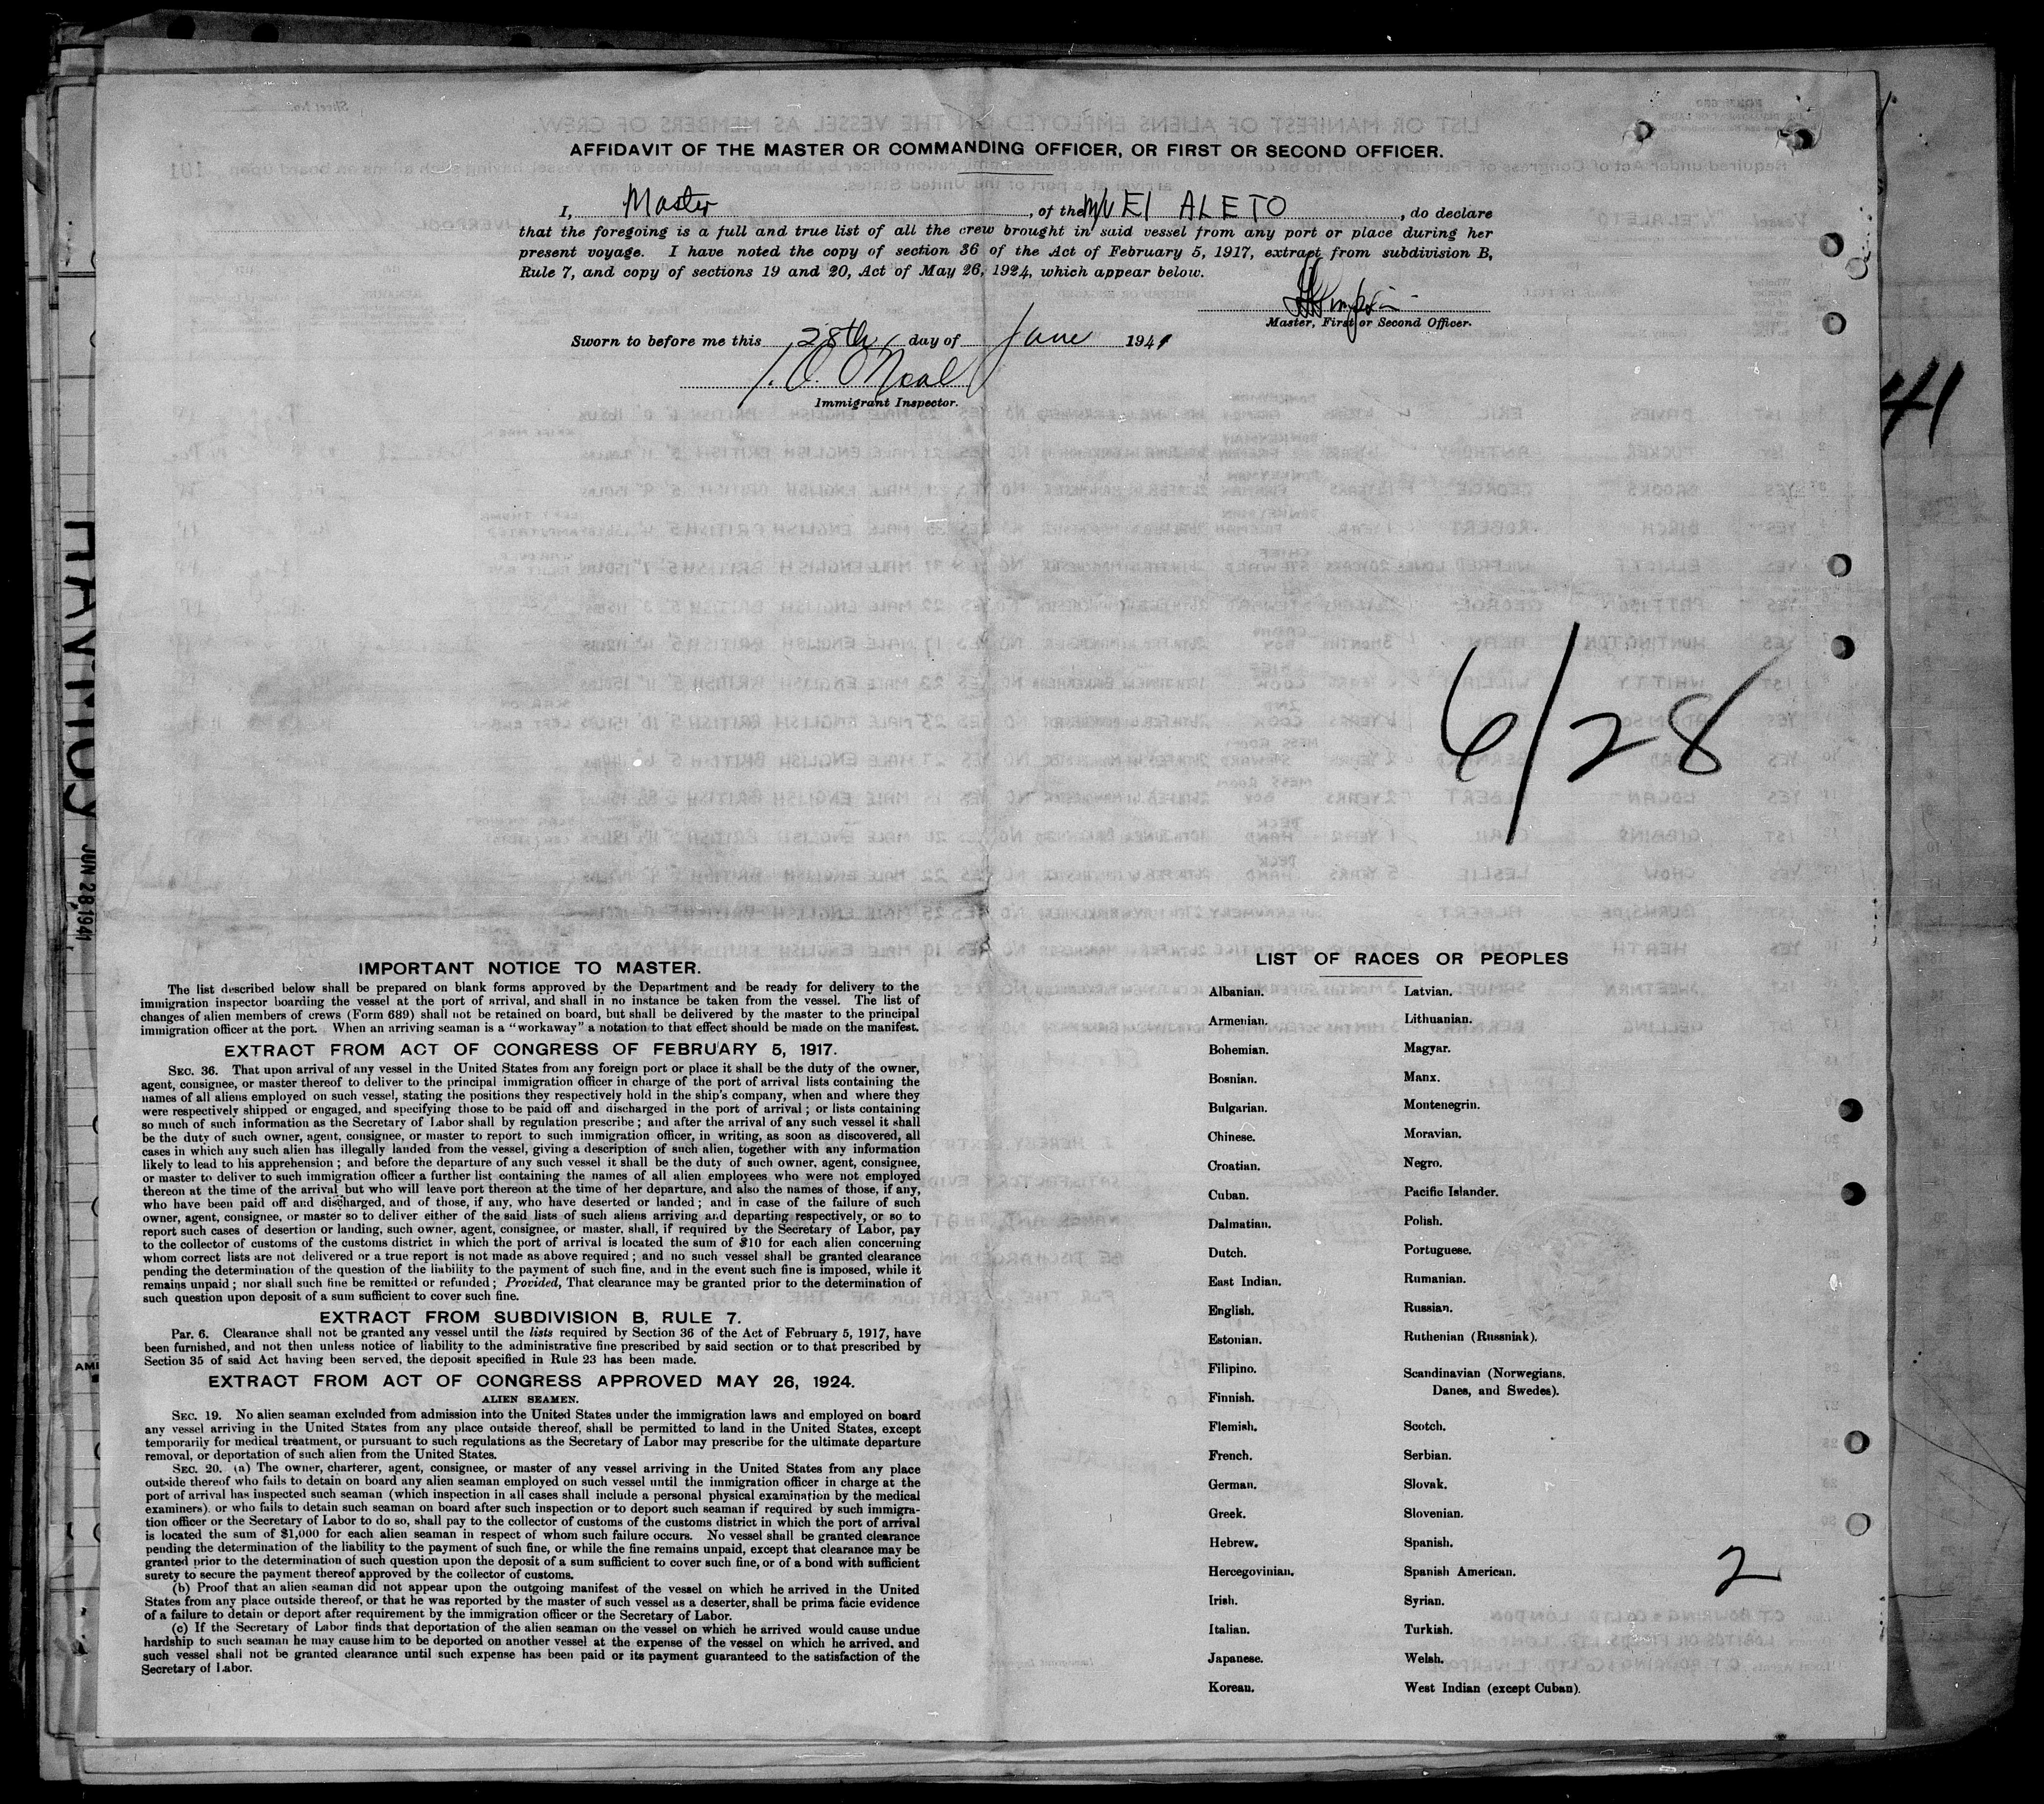 AFFIDAVIT OF THE MASTER OR COMMANDING OFFICER, OR FIRST OR SECOND OFFICER.
I, Master, of the M/V El ALETO, do declare
that the foregoing is a full and true list of all the crew brought in said vessel from any port or place during her
present voyage. I have noted the copy of section 36 of the Act of February 5, 1917, extract from subdivision B,
Rule 7, and copy of sections 19 and 20, Act of May 26, 1924, which appear below.
Master, First or Second Officer.
Sworn to before me this 28th day of June 1941
O'Neal
Immigrant Inspector.
41
6/28
JUN 28 1941
IMPORTANT NOTICE TO MASTER.
The list described below shall be prepared on blank forms approved by the Department and be ready for delivery to the
immigration inspector boarding the vessel at the port of arrival, and shall in no instance be taken from the vessel. The list of
changes of alien members of crews (Form 689) shall not be retained on board, but shall be delivered by the master to the principal
immigration officer at the port. When an arriving seaman is a "workaway" a notation to that effect should be made on the manifest.
EXTRACT FROM ACT OF CONGRESS OF FEBRUARY 5, 1917.
SEC. 36. That upon arrival of any vessel in the United States from any foreign port or place it shall be the duty of the owner,
agent, consignee, or master thereof to deliver to the principal immigration officer in charge of the port of arrival lists containing the
names of all aliens employed on such vessel, stating the positions they respectively hold in the ship's company, when and where they
were respectively shipped or engaged, and specifying those to be paid off and discharged in the port of arrival; or lists containing
so much of such information as the Secretary of Labor shall by regulation prescribe; and after the arrival of any such vessel it shall
be the duty of such owner, agent, consignee, or master to report to such immigration officer, in writing, as soon as discovered, all
cases in which any such alien has illegally landed from the vessel, giving a description of such alien, together with any information
likely to lead to his apprehension; and before the departure of any such vessel it shall be the duty of such owner, agent, consignee,
or master to deliver to such immigration officer a further list containing the names of all alien employees who were not employed
thereon at the time of the arrival but who will leave port thereon at the time of her departure, and also the names of those, if any,
who have been paid off and discharged, and of those, if any, who have deserted or landed; and in case of the failure of such
owner, agent, consignee, or master so to deliver either of the said lists of such aliens arriving and departing respectively, or so to
report such cases of desertion or landing, such owner, agent, consignee, or master, shall, if required by the Secretary of Labor, pay
to the collector of customs of the customs district in which the port of arrival is located the sum of $10 for each alien concerning
whom correct lists are not delivered or a true report is not made as above required; and no such vessel shall be granted clearance
pending the determination of the question of the liability to the payment of such fine, and in the event such fine is imposed, while it
remains unpaid; nor shall such fine be remitted or refunded; Provided, That clearance may be granted prior to the determination of
such question upon deposit of a sum sufficient to cover such fine.
EXTRACT FROM SUBDIVISION B, RULE 7.
Par. 6. Clearance shall not be granted any vessel until the lists required by Section 36 of the Act of February 5, 1917, have
been furnished, and not then unless notice of liability to the administrative fine prescribed by said section or to that prescribed by
Section 35 of said Act having been served, the deposit specified in Rule 23 has been made.
EXTRACT FROM ACT OF CONGRESS APPROVED MAY 26, 1924.
ALIEN SEAMEN.
SEC. 19. No alien seaman excluded from admission into the United States under the immigration laws and employed on board
any vessel arriving in the United States from any place outside thereof, shall be permitted to land in the United States, except
temporarily for medical treatment, or pursuant to such regulations as the Secretary of Labor may prescribe for the ultimate departure
removal, or deportation of such alien from the United States.
SEC. 20. (a) The owner, charterer, agent, consignee, or master of any vessel arriving in the United States from any place
outside thereof who fails to detain on board any alien seaman employed on such vessel until the immigration officer in charge at the
port of arrival has inspected such seaman (which inspection in all cases shall include a personal physical examination by the medical
examiners) or who fails to detain such seaman on board after such inspection or to deport such seaman if required by such immigra-
tion officer or the Secretary of Labor to do so, shall pay to the collector of customs of the customs district in which the port of arrival
is located the sum of $1,000 for each alien seaman in respect of whom such failure occurs. No vessel shall be granted clearance
pending the determination of the liability to the payment of such fine, or while the fine remains unpaid, except that clearance may be
granted prior to the determination of such question upon the deposit of a sum sufficient to cover such fine, or of a bond with sufficient
surety to secure the payment thereof approved by the collector of customs.
(b) Proof that an alien seaman did not appear upon the outgoing manifest of the vessel on which he arrived in the United
States from any place outside thereof, or that he was reported by the master of such vessel as a deserter, shall be prima facie evidence
of a failure to detain or deport after requirement by the immigration officer or the Secretary of Labor.
(c) If the Secretary of Labor finds that deportation of the alien seaman on the vessel on which he arrived would cause undue
hardship to such seaman he may cause him to be deported on another vessel at the expense of the vessel on which he arrived, and
such vessel shall not be granted clearance until such expense has been paid or its payment guaranteed to the satisfaction of the
Secretary of Labor.
LIST OF RACES OR PEOPLES
Albanian.
Armenian.
Bohemian.
Bosnian.
Bulgarian.
Chinese.
Croatian.
Cuban.
Dalmatian.
Dutch.
East Indian.
English.
Estonian.
Filipino.
Finnish.
Flemish.
French.
German.
Greek.
Hebrew.
Hercegovinian.
Irish.
Italian.
Japanese.
Korean.
Latvian.
Lithuanian.
Magyar.
Manx.
Montenegrin.
Moravian.
Negro.
Pacific Islander.
Polish.
Portuguese.
Rumanian.
Russian.
Ruthenian (Russniak).
Scandinavian (Norwegians,
Danes, and Swedes).
Scotch.
Serbian.
Slovak.
Slovenian.
Spanish.
Spanish American.
Syrian.
Turkish.
Welsh.
West Indian (except Cuban).
2